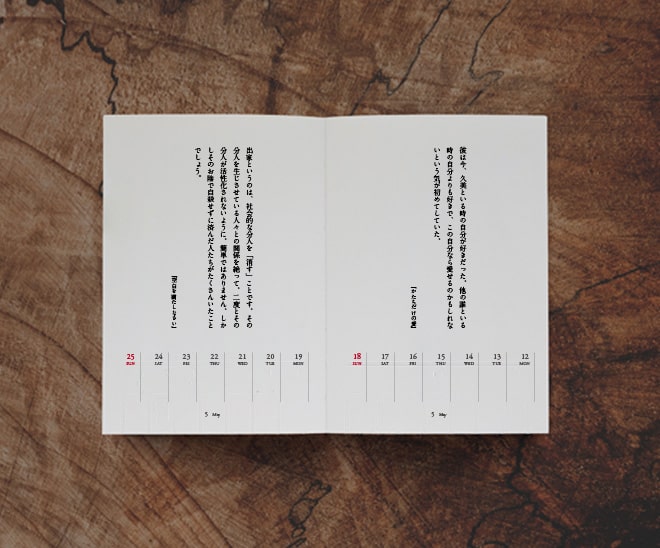 彼は今、久美といる時の自分が好きだった。他の誰といる
時の自分よりも好きで、この自分なら愛せるのかもしれな
いという気が初めてしていた。
『かたちだけの愛』
12 13 14 15 16 17 18
MON TUE WED THU FRI SAT SUN
5 May
出家というのは、社会的な分人を「消す」ことです。その
分人を生じさせている人々との関係を絶って、二度とその
分人が活性化されないように。簡単ではありません。しか
しそのお陰で自殺せずに済んだ人たちがたくさんいたこと
でしょう。
『空白を満たしなさい』
19 20 21 22 23 24 25
MON TUE WED THU FRI SAT SUN
5 May